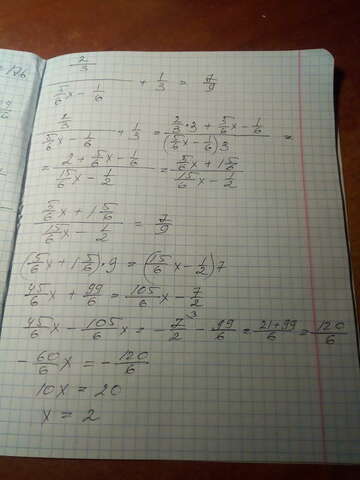 2/3 / (5/6 x − 1/6) + 1/3 = 7/9
2/3 / (5/6 x − 1/6) + 1/3 = (2/3 * 3 + 5/6 x − 1/6) / ((5/6 x − 1/6) 3) =
= (2 + 5/6 x − 1/6) / (15/6 x − 1/2) = (5/6 x + 1 5/6) / (15/6 x − 1/2)
(5/6 x + 1 5/6) / (15/6 x − 1/2) = 7/9
(5/6 x + 1 5/6) * 9 = (15/6 x − 1/2) 7
45/6 x + 99/6 = 105/6 x − 7/2
45/6 x − 105/6 x = − 7/2 \3 − 99/6 = (21+99)/6 = 120/6
− 60/6 x = − 120/6
10x = 20
x = 2